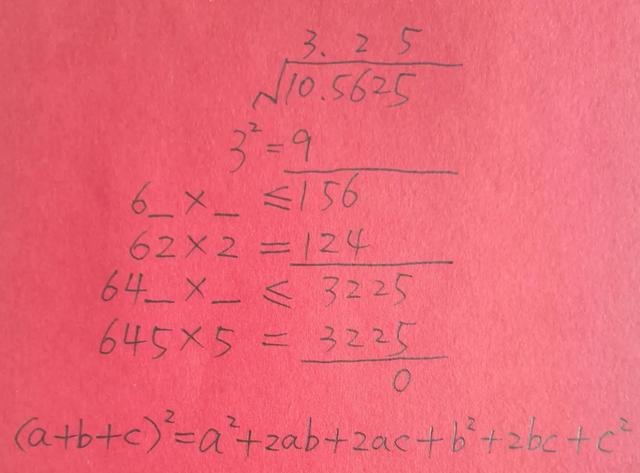 3. 2 5
√10.5625
3²=9
6_ × _ ≤156
62×2 =124
64_ × _ ≤ 3225
645×5 = 3225
0
(a+b+c)²=a²+2ab+2ac+b²+2bc+c²